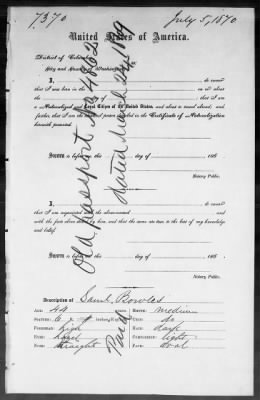 7370
July 5, 1870
United States of America.
District of
City and
I, do swear
that I was born in the on or about
the day of that I am
a Naturalized and Loyal Citizen of the United States, and about to travel abroad; and
further, that I am the person named in the Certificate of Naturalization
herewith presented.
Sworn to before me, this day of 186
Notary Public.
I, do swear
that I am acquainted with the above-named and with
the facts above stated by him, and that the same are true to the best of my knowledge
and belief.
Sworn to before me, this day of 186
Notary Public.
Old passport No 4862
Dated March
Paid
Description of Saml Bowles
Age: 44 years. Mouth: medium
Stature: 6 ft. Inches, Eng. Chin: do
Forehead: high Hair: dark
Eyes: Complexion: light
Nose: straight Face: oval